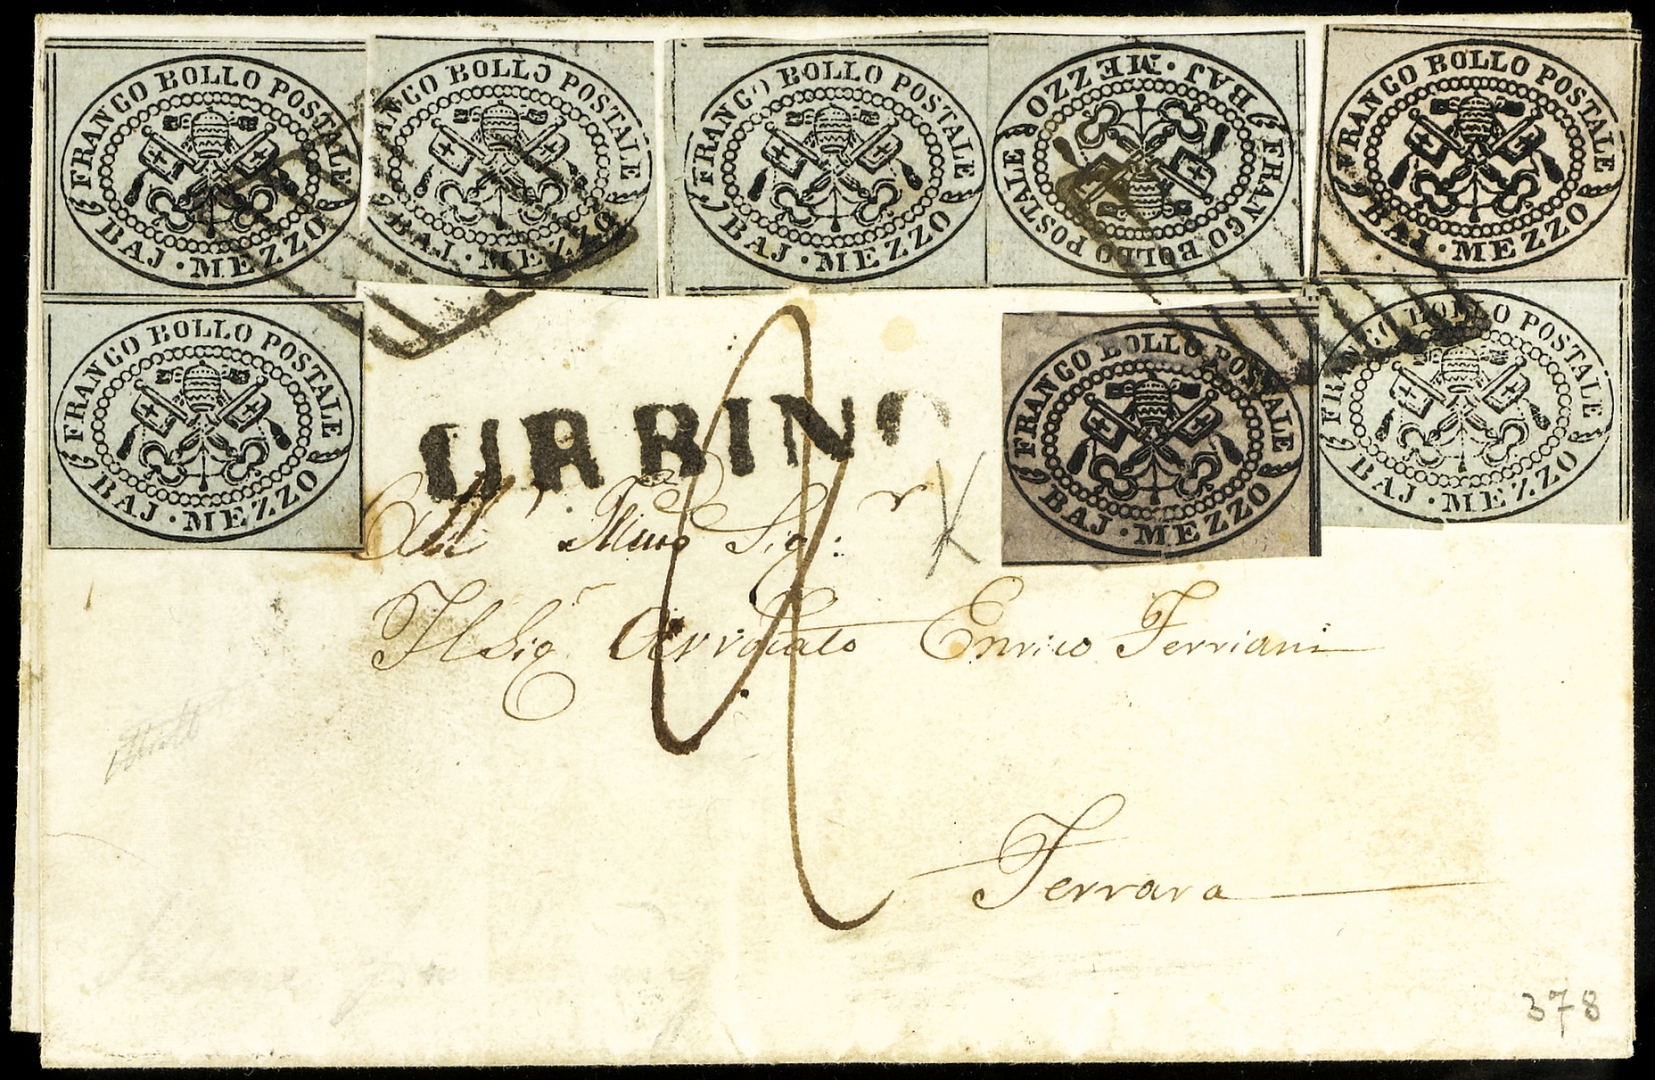 FRANCO BOLLO POSTALE
BAJ · MEZZO
FRANCO BOLLO POSTALE
BAJ · MEZZO
FRANCO BOLLO POSTALE
BAJ · MEZZO
FRANCO BOLLO POSTALE
BAJ · MEZZO
FRANCO BOLLO POSTALE
BAJ · MEZZO
FRANCO BOLLO POSTALE
BAJ · MEZZO
FRANCO BOLLO POSTALE
BAJ · MEZZO
FRANCO BOLLO POSTALE
BAJ · MEZZO
URBINO
All' Illmo Sigr:
Il Sigr Avvocato Enrico Ferriani
Ferrara
378